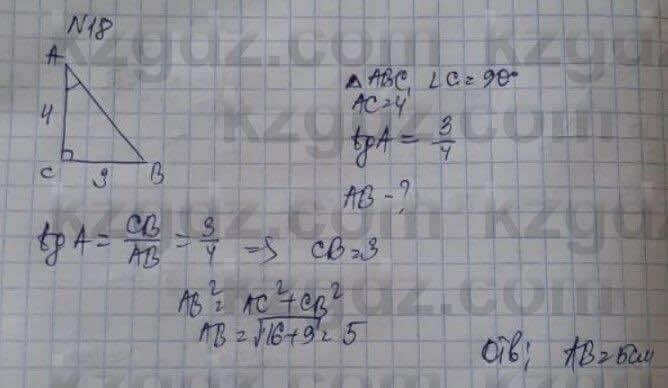 N18
A
4
C
3
B
△ABC, ∠C=90°
AC=4
tgA = 3/4
AB - ?
tg A = CB/AB = 3/4 => CB=3
AB² = AC² + CB²
AB = √16+9 = 5
Отв; AB=5см
kzgdz.com